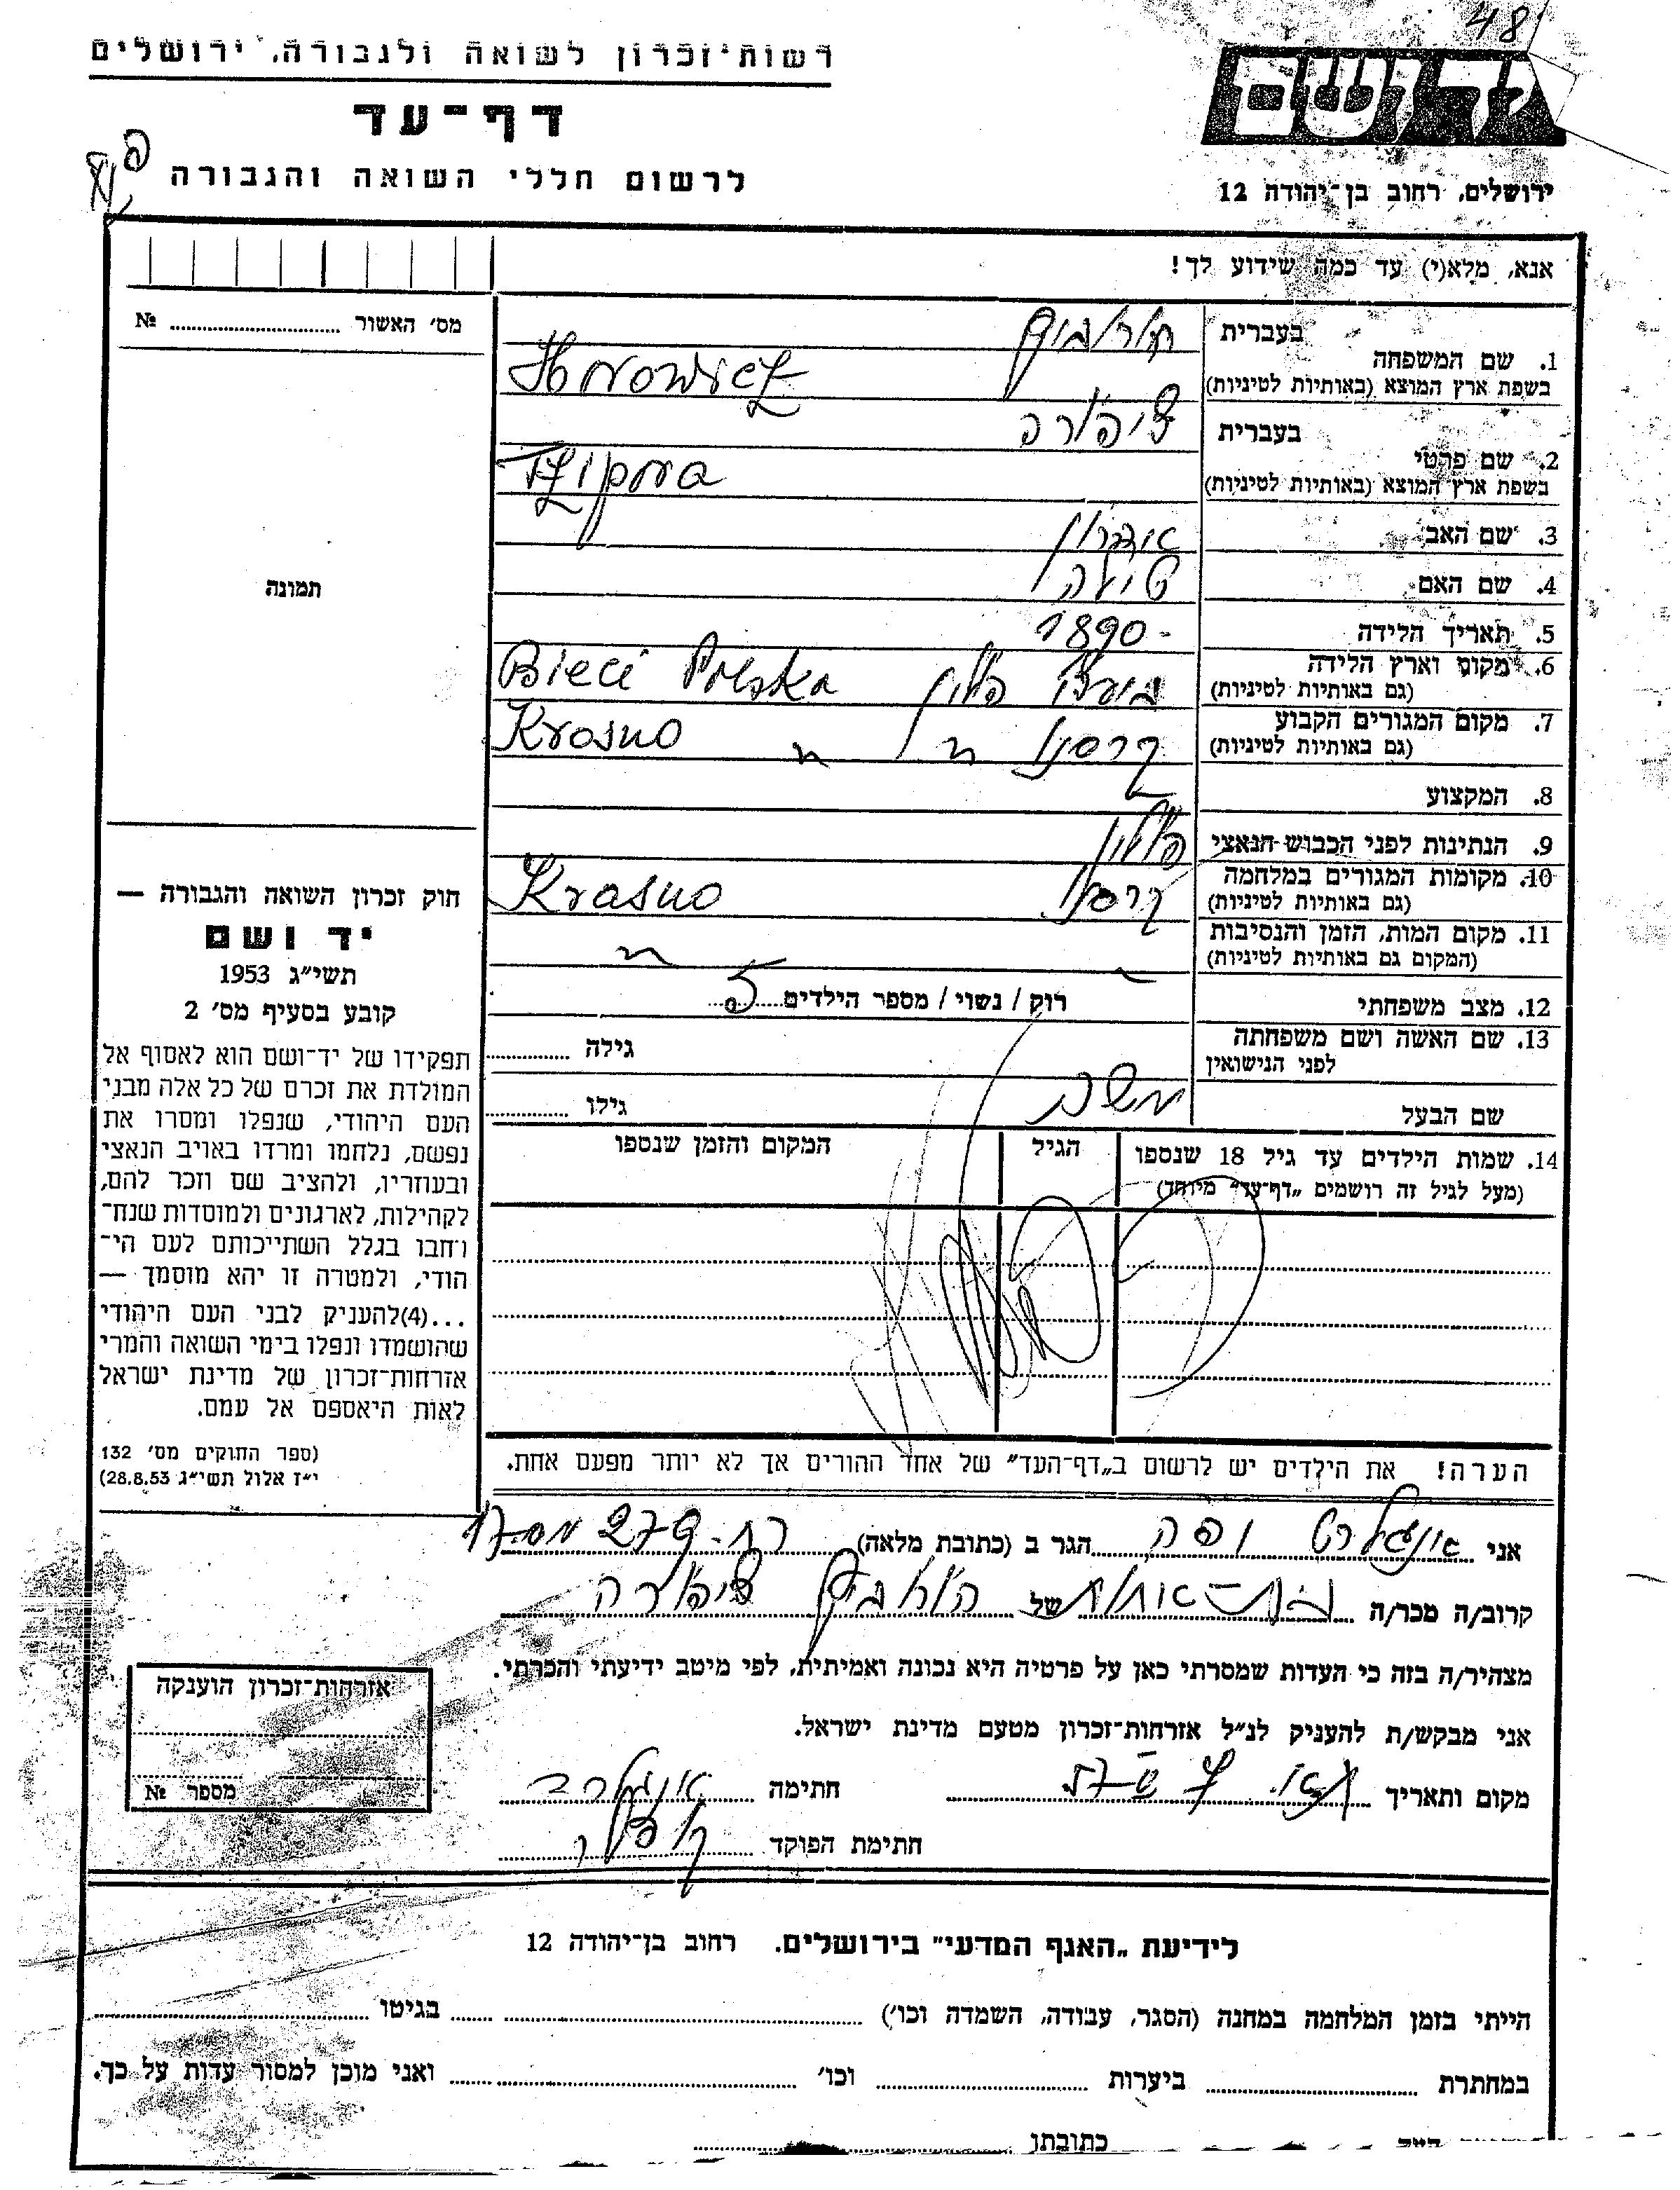 48
רשות־זכרון לשואה ולגבורה, ירושלים
דף־עד
לרשום חללי השואה והגבורה
יד ושם
ירושלים, רחוב בן־יהודה 12
אנא, מלא(י) עד כמה שידוע לך!
מס׳ האשור № 
תמונה
בעברית
1. שם המשפחה
בשפת ארץ המוצא (באותיות לטיניות) Horowicz
בעברית ציפורה
2. שם פרטי
בשפת ארץ המוצא (באותיות לטיניות)
3. שם האב
4. שם האם
5. תאריך הלידה 1890-
6. מקום וארץ הלידה פולין Bieci Polska
(גם באותיות לטיניות)
7. מקום המגורים הקבוע קרסנו Krosno
(גם באותיות לטיניות)
8. המקצוע
9. הנתינות לפני הכבוש הנאצי פולין
10. מקומות המגורים במלחמה קרסנו Krasno
(גם באותיות לטיניות)
11. מקום המות, הזמן והנסיבות
(המקום גם באותיות לטיניות)
12. מצב משפחתי רוק / נשוי / מספר הילדים 5
13. שם האשה ושם משפחתה גילה
לפני הנישואין
שם הבעל משה גילו
14. שמות הילדים עד גיל 18 שנספו הגיל המקום והזמן שנספו
(מעל לגיל זה רושמים „דף־עד״ מיוחד)
הערה! את הילדים יש לרשום ב„דף־העד״ של אחד ההורים אך לא יותר מפעם אחת.
חוק זכרון השואה והגבורה —
יד ושם
תשי״ג 1953
קובע בסעיף מס׳ 2
תפקידו של יד־ושם הוא לאסוף אל
המולדת את זכרם של כל אלה מבני
העם היהודי, שנפלו ומסרו את
נפשם, נלחמו ומרדו באויב הנאצי
ובעוזריו, ולהציב שם וזכר להם,
לקהילות, לארגונים ולמוסדות שנח־
רבו בגלל השתייכותם לעם הי־
הודי, ולמטרה זו יהא מוסמך —
...(4)להעניק לבני העם היהודי
שהושמדו ונפלו בימי השואה והמרי
אזרחות־זכרון של מדינת ישראל
לאות היאספם אל עמם.
(ספר החוקים מס׳ 132
י״ז אלול תשי״ג 28.8.53)
אני הגר ב (כתובת מלאה)
קרוב/ה מכר/ה בת-אחות של הורוביץ ציפורה
מצהיר/ה בזה כי העדות שמסרתי כאן על פרטיה היא נכונה ואמיתית, לפי מיטב ידיעתי והכרתי.
אני מבקש/ת להעניק לנ״ל אזרחות־זכרון מטעם מדינת ישראל.
מקום ותאריך חתימה
חתימת הפוקד
אזרחות־זכרון הוענקה
מספר №
לידיעת „האגף המדעי״ בירושלים. רחוב בן־יהודה 12
הייתי בזמן המלחמה במחנה (הסגר, עבודה, השמדה וכו׳) בגיטו
במחתרת ביערות וכו׳ ואני מוכן למסור עדות על כך.
כתובתו